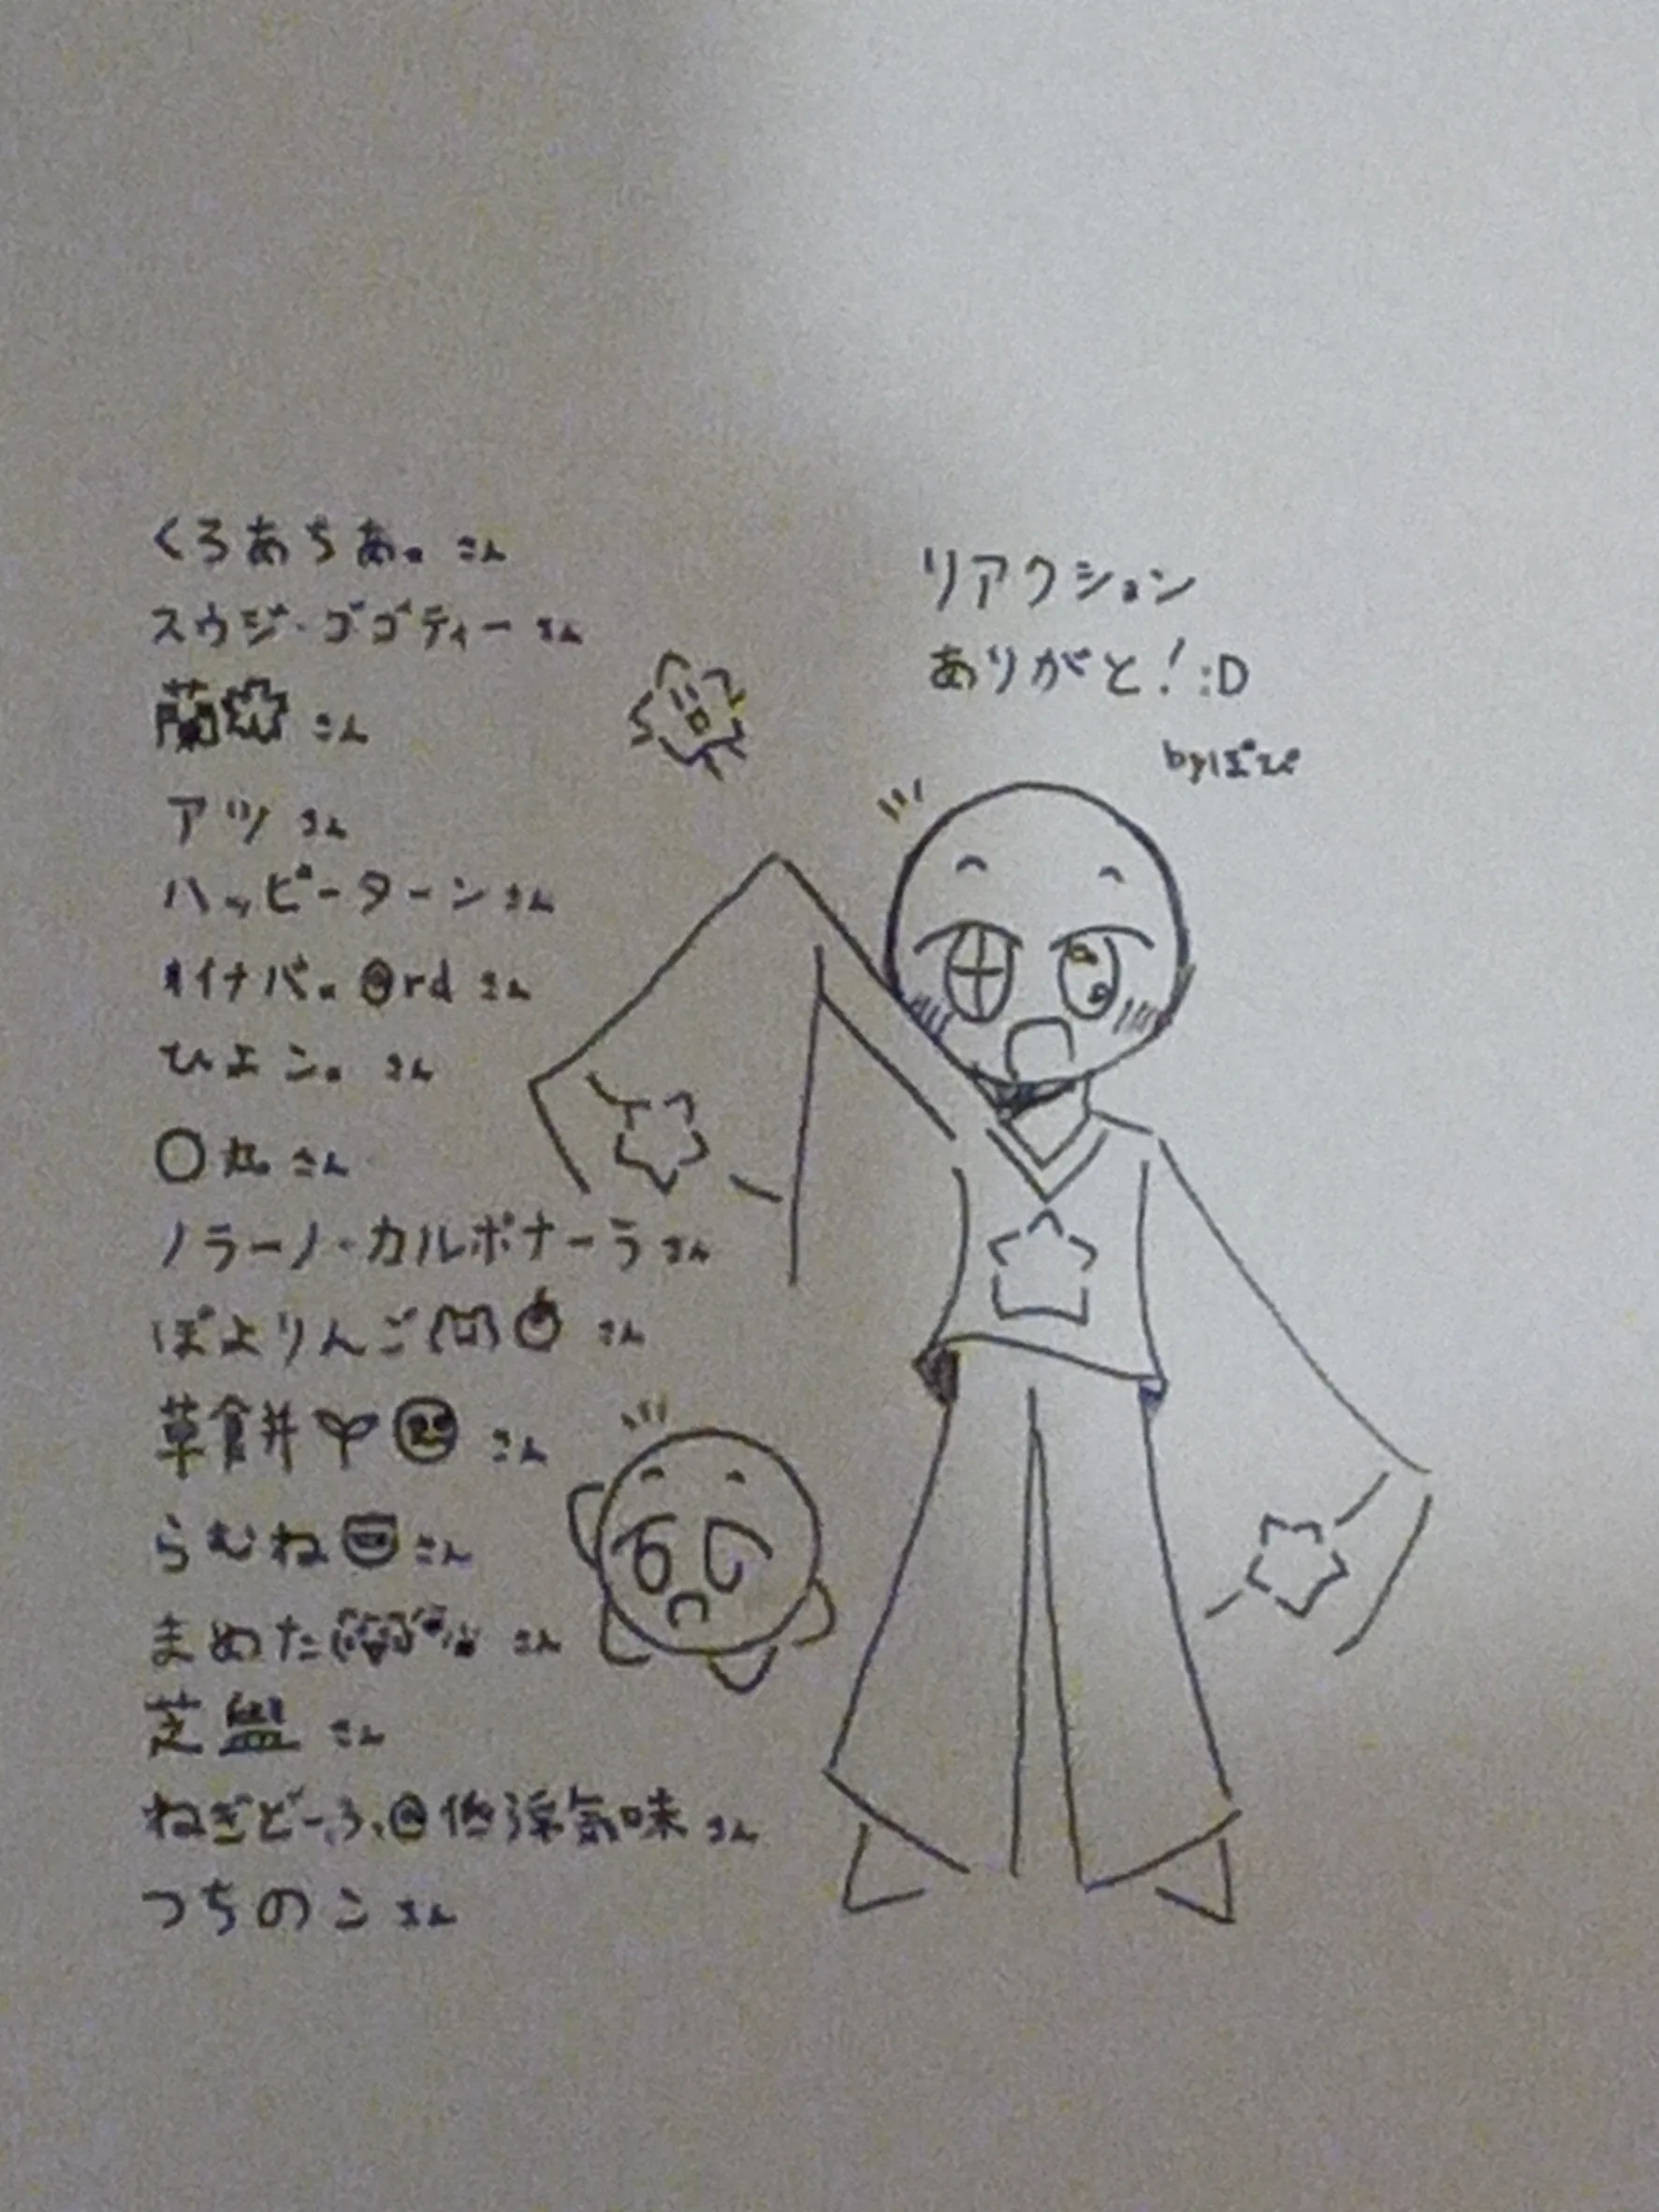 くろあちあ。さん
スウジ・ゴゴティーさん
蘭さん
アツさん
ハッピーターンさん
オイナバ。@rdさん
ひよこ。さん
〇丸さん
ノラーノ・カルボナーラさん
ぽよりんごさん
草食丼🌱さん
らむねさん
まめたさん
芝盤さん
ねぎどーふ、@低浮気味さん
つちのこさん
リアクション
ありがと!:D
byぽぴ